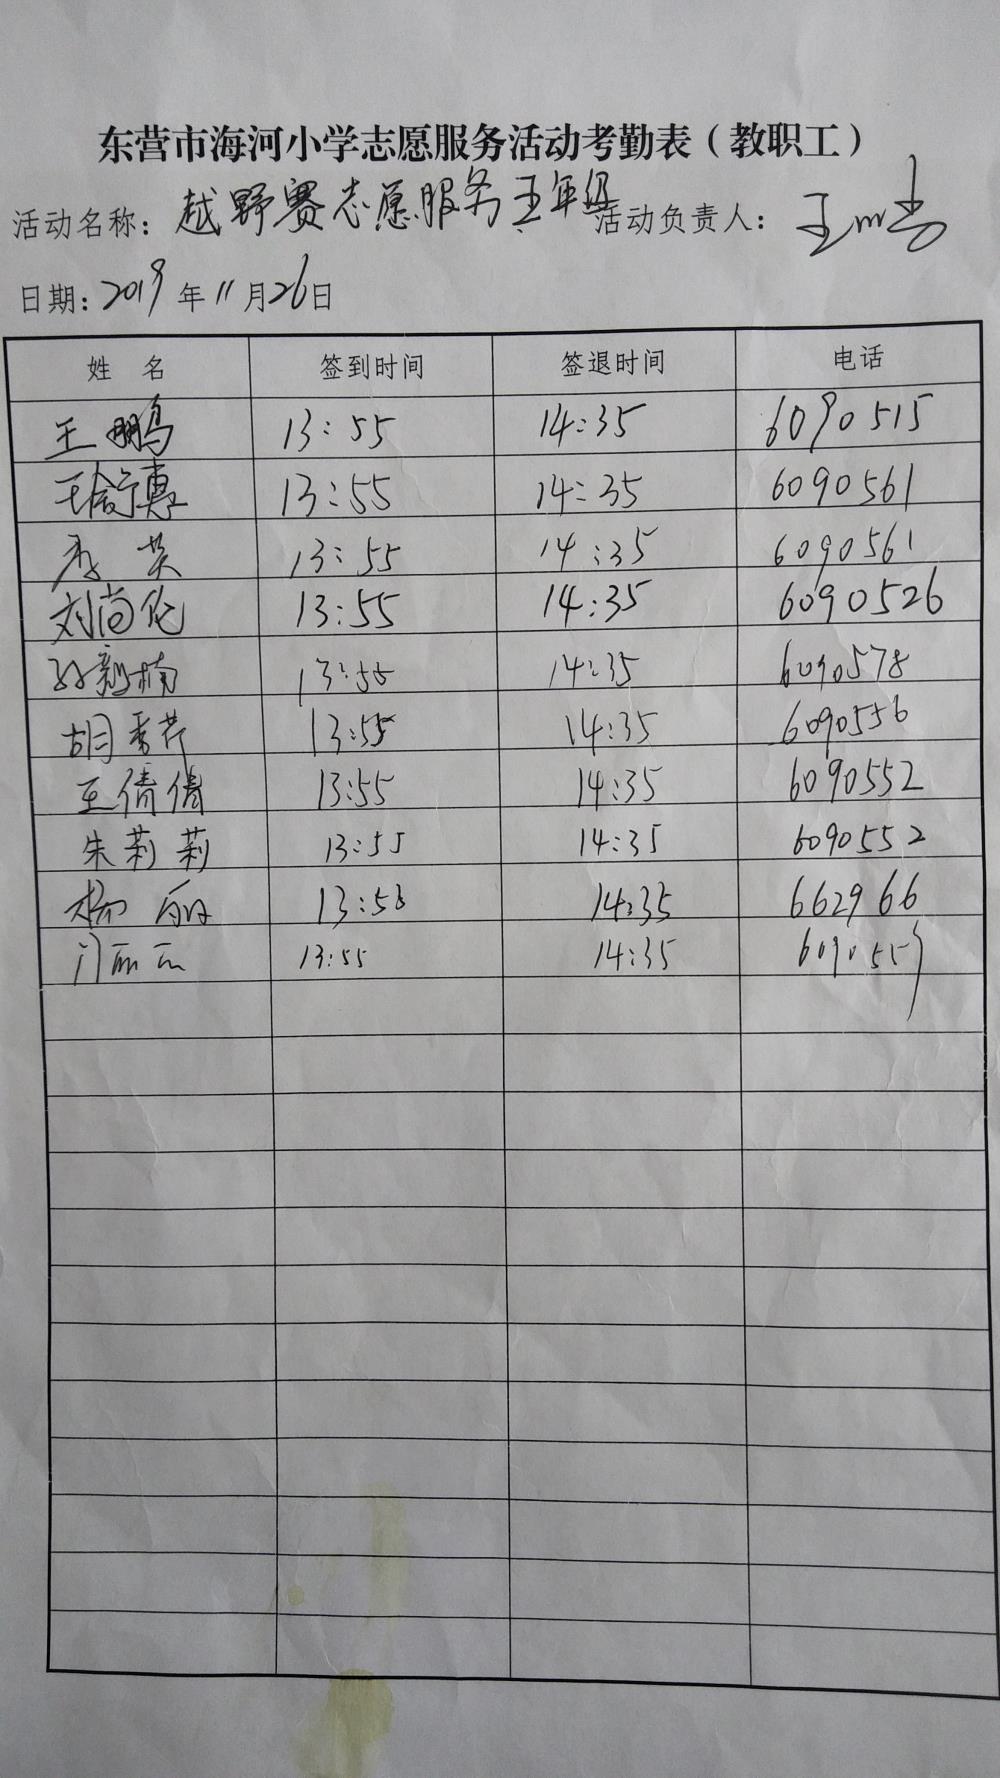 东营市海河小学志愿服务活动考勤表（教职工）
活动名称：越野赛志愿服务五年级 活动负责人：王
日期：2019年11月26日
姓 名 签到时间 签退时间 电话
王鹏 13:55 14:35 6090515
王 13:55 14:35 6090561
李英 13:55 14:35 6090561
刘尚伦 13:55 14:35 6090526
孙毅楠 13:55 14:35 6090578
胡秀芹 13:55 14:35 6090556
王倩倩 13:55 14:35 6090552
朱莉莉 13:55 14:35 6090552
杨丽 13:55 14:35 662966
门丽云 13:55 14:35 6090559